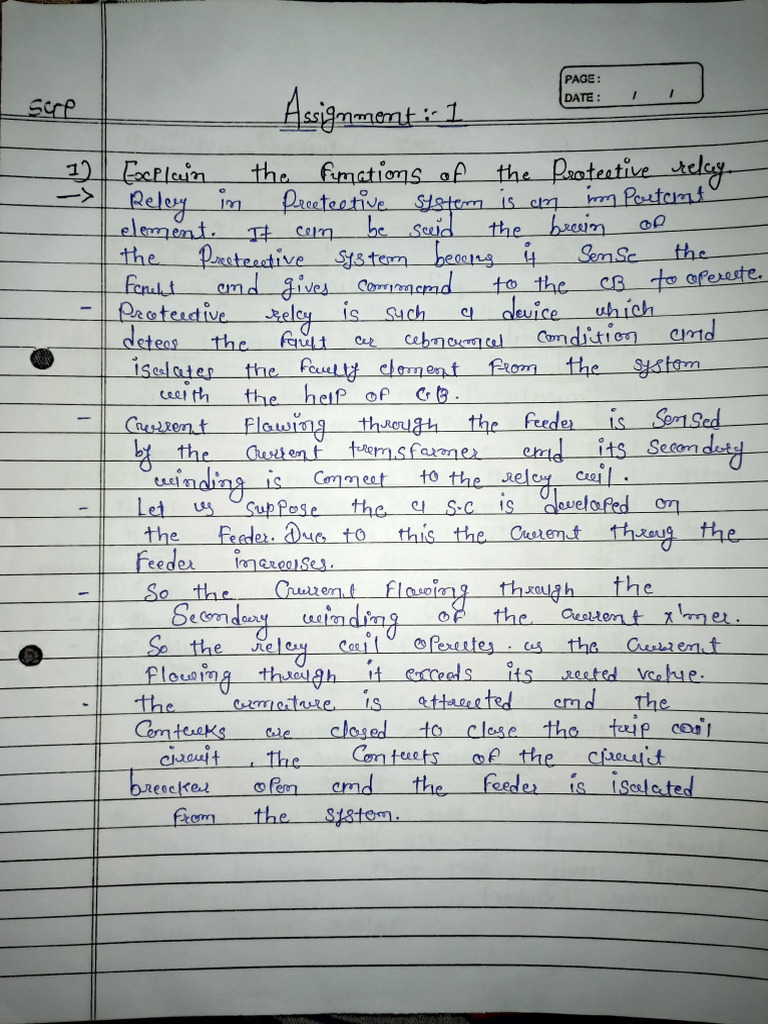 PAGE:
DATE: / /
SGP
Assignment:- 1
1) Explain the functions of the Protective relay.
→ Relay in Protective system is an important
element. It can be said the brain of
the Protective system becaus it Sense the
fault and gives command to the CB to operate.
- Protective relay is such a device which
detecs the fault or abnormal condition and
isolates the faulty element from the system
with the help of CB.
- Current flowing through the feeder is Sensed
by the current transformer and its Secondary
winding is connect to the relay coil.
- Let us suppose the a S.C is developed on
the feeder. Due to this the current throug the
feeder increases.
- So the Current flowing through the
Secondary winding of the current x'mer.
So the relay coil operates. as the current
flowing through it exceeds its rated value.
- the armature is attracted and the
Contacks are closed to close the trip coil
circuit, the Contacts of the circuit
breacker open and the feeder is isolated
from the system.